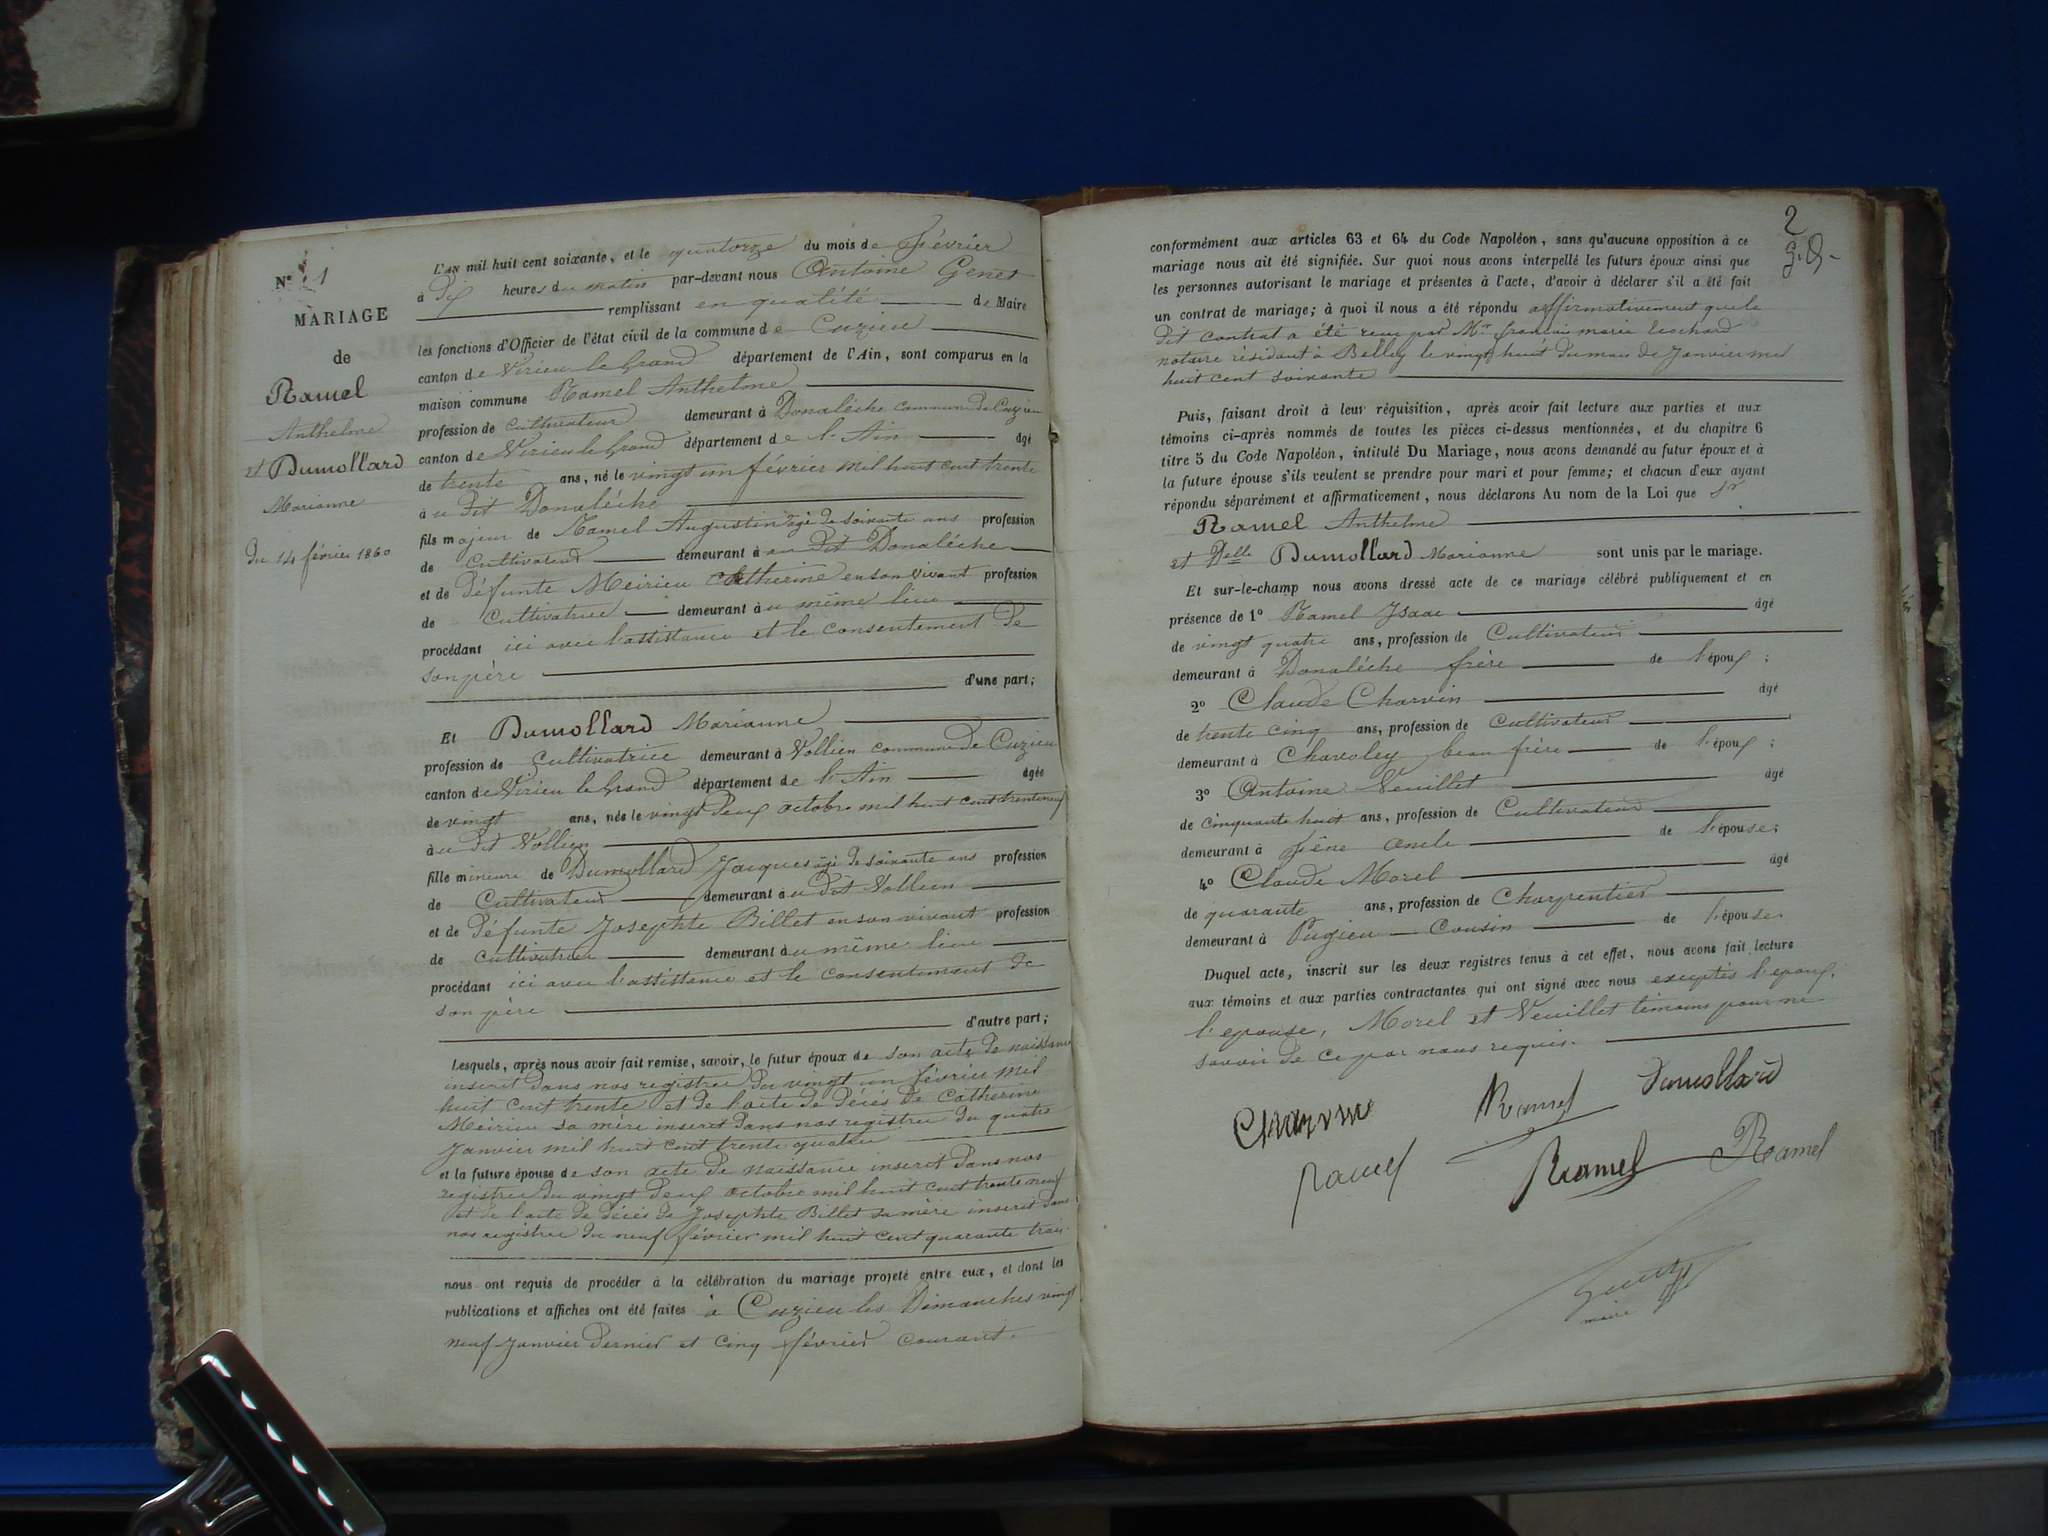 N° 1
MARIAGE
de
Ramel
Anthelme
et Dumollard
Marianne
du 14 février 1860
L'AN mil huit cent soixante, et le quatorze du mois de février
à dix heures du matin par-devant nous Antoine Genet
remplissant en qualité de Maire
les fonctions d'Officier de l'état civil de la commune de Cuzieu
canton de Virieu le Grand département de l'Ain, sont comparus en la
maison commune Ramel Anthelme
profession de Cultivateur demeurant à Donalèche commune de Cuzieu
canton de Virieu le Grand département de l'Ain âgé
de trente ans, né le vingt un février mil huit cent trente
à u dit Donalèche
fils majeur de Ramel Augustin âgé de soixante ans profession
de Cultivateur demeurant à au dit Donalèche
et de défunte Meirieu Catherine en son vivant profession
de Cultivatrice demeurant à u même lieu
procédant ici avec l'assistance et le consentement de
son père
d'une part;
Et Dumollard Marianne
profession de Cultivatrice demeurant à Vollien commune de Cuzieu
canton de Virieu le Grand département de l'Ain âgée
de vingt ans, née le vingt deux octobre mil huit cent trente neuf
à u dit Vollien
fille mineure de Dumollard Jacques âgé de soixante ans profession
de Cultivateur demeurant à u dit Vollien
et de défunte Josephte Billet en son vivant profession
de Cultivatrice demeurant à u même lieu
procédant ici avec l'assistance et le consentement de
son père
d'autre part;
Lesquels, après nous avoir fait remise, savoir, le futur époux de son acte de naissance
inscrit dans nos registres du vingt un février mil
huit cent trente et de l'acte de décès de Catherine
Meirieu sa mère inscrit dans nos registres du quatre
Janvier mil huit cent trente quatre
et la future épouse de son acte de naissance inscrit dans nos
registres du vingt deux octobre mil huit cent trente neuf
et de l'acte de décès de Josephte Billet sa mère inscrit dans
nos registres du neuf février mil huit cent quarante trois
nous ont requis de procéder à la célébration du mariage projeté entre eux, et dont les
publications et affiches ont été faites à Cuzieu les Dimanches vingt
neuf Janvier dernier et cinq février courant.
2
conformément aux articles 63 et 64 du Code Napoléon, sans qu'aucune opposition à ce
mariage nous ait été signifiée. Sur quoi nous avons interpellé les futurs époux ainsi que
les personnes autorisant le mariage et présentes à l'acte, d'avoir à déclarer s'il a été fait
un contrat de mariage; à quoi il nous a été répondu affirmativement que le
dit contrat a été reçu par Mr françois marie
notaire résidant à Belley le vingt huit du mois de Janvier mil
huit cent soixante
Puis, faisant droit à leur réquisition, après avoir fait lecture aux parties et aux
témoins ci-après nommés de toutes les pièces ci-dessus mentionnées, et du chapitre 6
titre 5 du Code Napoléon, intitulé Du Mariage, nous avons demandé au futur époux et à
la future épouse s'ils veulent se prendre pour mari et pour femme; et chacun d'eux ayant
répondu séparément et affirmativement, nous déclarons Au nom de la Loi que Sr
Ramel Anthelme
et Delle Dumollard Marianne sont unis par le mariage.
Et sur-le-champ nous avons dressé acte de ce mariage célébré publiquement et en
présence de 1° Ramel Isaac âgé
de vingt quatre ans, profession de Cultivateur
demeurant à Donalèche frère de l'époux;
2° Claude Charvin âgé
de trente cinq ans, profession de Cultivateur
demeurant à Chavoley beau frère de l'époux;
3° Antoine Veuillet âgé
de cinquante huit ans, profession de Cultivateur
demeurant à oncle de l'épouse;
4° Claude Morel âgé
de quarante ans, profession de Charpentier
demeurant à Pugieu Cousin de l'épouse
Duquel acte, inscrit sur les deux registres tenus à cet effet, nous avons fait lecture
aux témoins et aux parties contractantes qui ont signé avec nous exceptés l'époux,
l'épouse, Morel et Veuillet témoins pour ne
savoir de ce par nous requis.
Charvin Ramel Dumollard
Ramel Ramel Ramel
maire